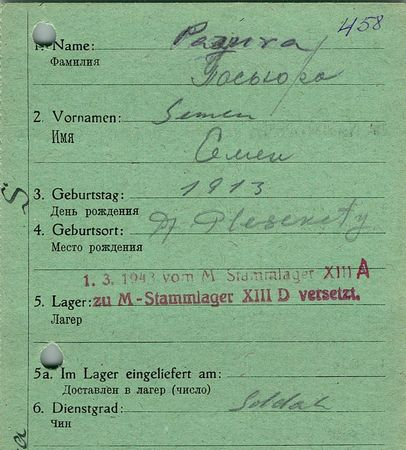 458
1. Name:
Фамилия
2. Vornamen: Semen
Имя Семен
3. Geburtstag: 1913
День рождения
4. Geburtsort:
Место рождения
1. 3. 1943 vom M Stammlager XIII A
5. Lager: zu M-Stammlager XIII D versetzt.
Лагер
5a. Im Lager eingeliefert am:
Доставлен в лагер (число)
6. Dienstgrad: Soldat
Чин